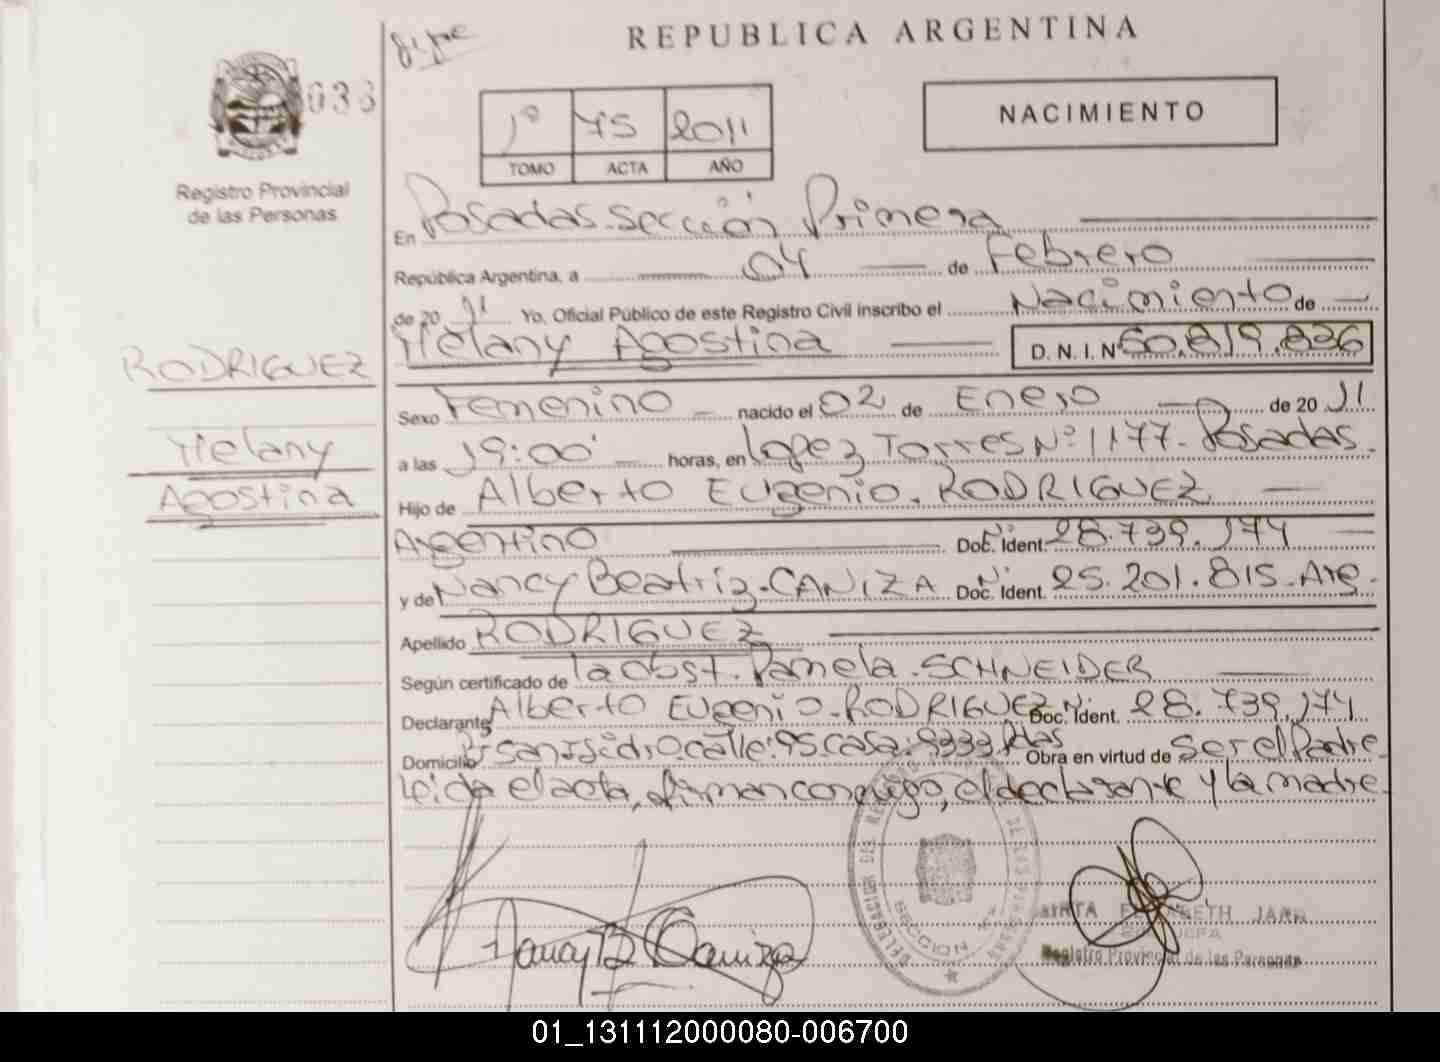 REPUBLICA ARGENTINA
036
1º 75 2011
TOMO ACTA AÑO
NACIMIENTO
Registro Provincial
de las Personas
En Posadas. Sección Primera
República Argentina, a 04 de Febrero
de 2011 Yo, Oficial Público de este Registro Civil inscribo el Nacimiento de
Melany Agostina D. N. I. Nº 50.819.836
RODRIGUEZ
Melany
Agostina
Sexo Femenino nacido el 02 de Enero de 2011
a las 19:00 horas, en Lopez Torres Nº 1177. Posadas.
Hijo de Alberto Eugenio. RODRIGUEZ
Argentino Doc. Ident. 28.739.174
y de Nancy Beatriz. CANIZA Doc. Ident. 25.201.815. Arg.
Apellido RODRIGUEZ
Según certificado de la Obst. Pamela. SCHNEIDER
Declarante Alberto Eugenio. RODRIGUEZ Doc. Ident. 28.739.174
Domicilio Bº San Isidro. calle: 95 casa: 9333. Pdas Obra en virtud de Ser el Padre
Leida el acta, firman conmigo, el declarante y la madre.
Nancy B Caniza
DELEGACION DEL REGISTRO DE LAS PERSONAS
SECCION
Registro Provincial de las Personas
01_131112000080-006700